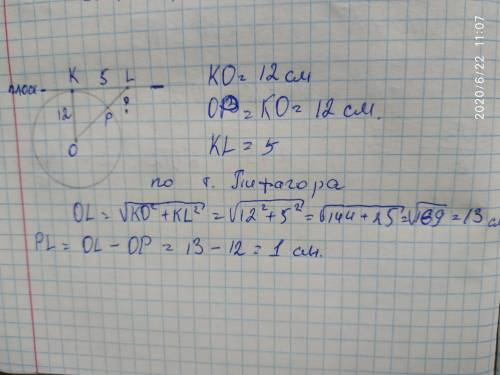 K 5 L
плоск -
12
P ?
O
KO = 12 см
OP = KO = 12 см.
KL = 5
по т. Пифагора
OL = √KO² + KL² = √12² + 5² = √144 + 25 = √169 = 13 см
PL = OL - OP = 13 - 12 = 1 см.
2020/6/22 11:07